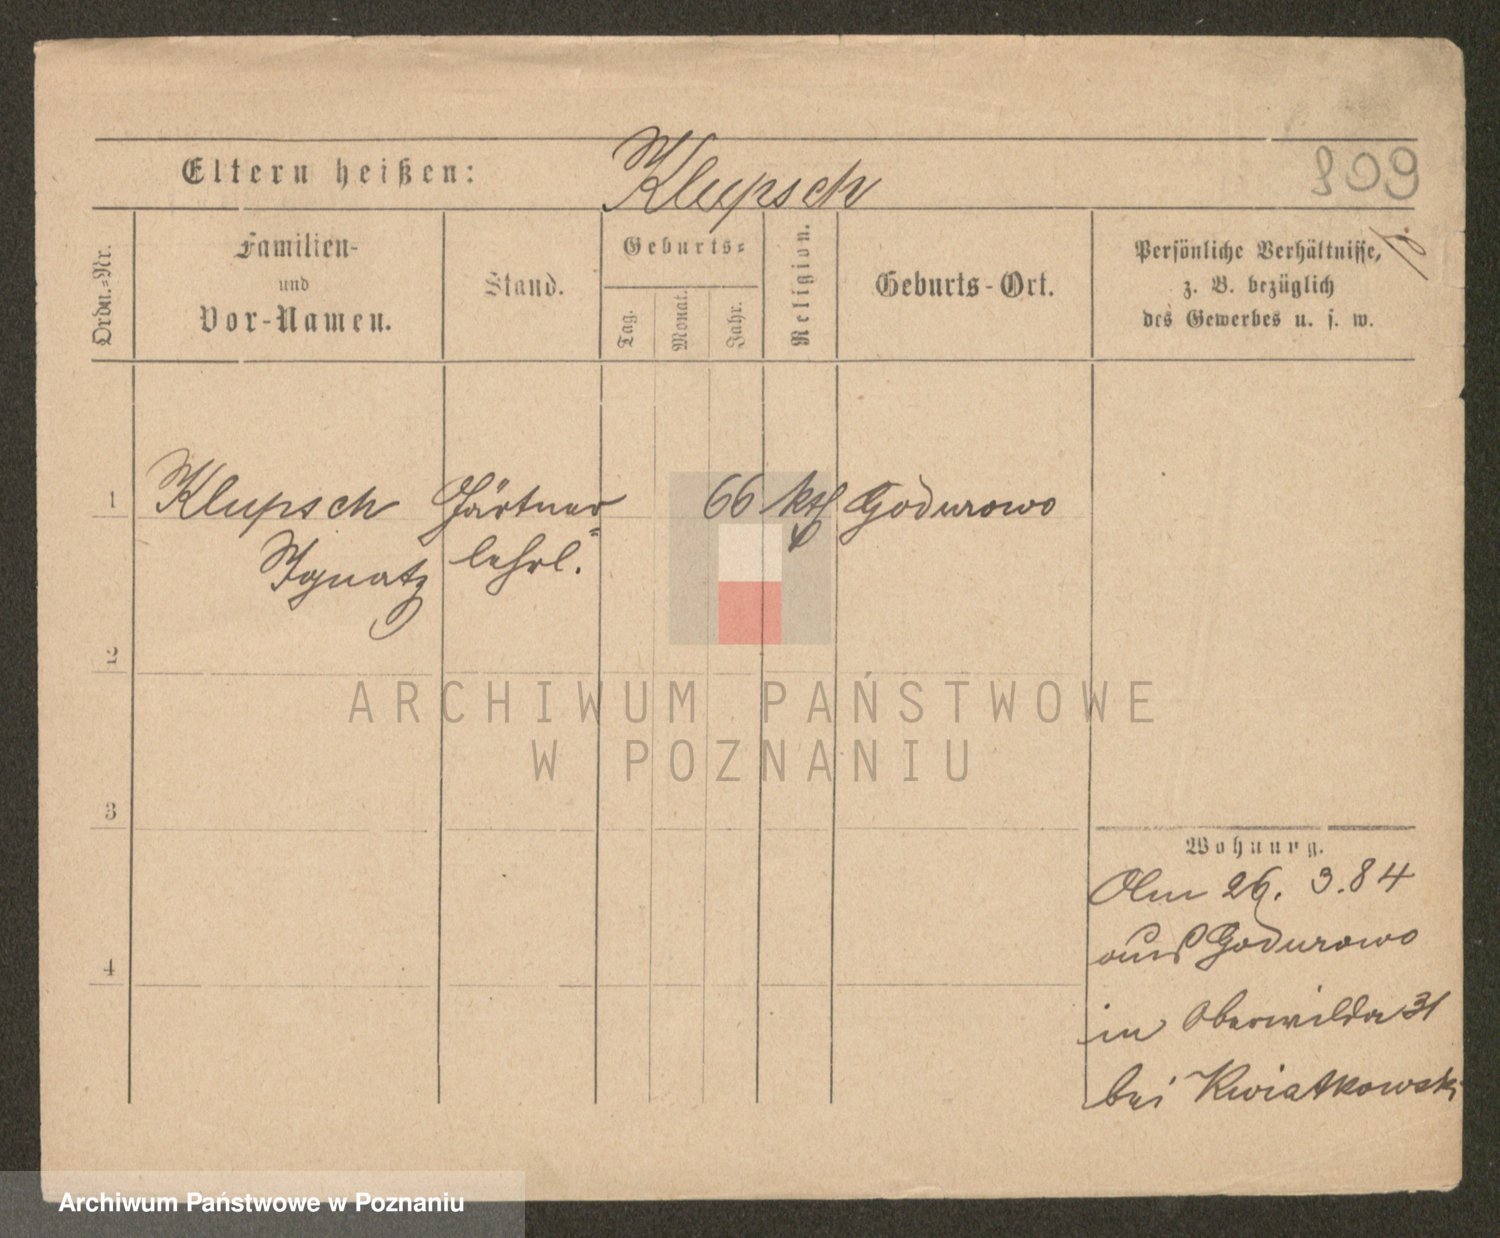 Eltern heißen: Klupsch 809
Ordn.=Nr.
Familien-
und
Vor-Namen.
Stand.
Geburts=
Tag.
Monat.
Jahr.
Religion.
Geburts-Ort.
Persönliche Verhältnisse,
z. B. bezüglich
des Gewerbes u. s. w.
1 Klupsch Gärtner= 66 kth Godurowo
Ignatz lehrl.
2
ARCHIWUM PAŃSTWOWE
W POZNANIU
3
Wohnung.
26. 3.84
aus Godurowo
4
in Oberwilda 31
bei Kwiatkowski
Archiwum Państwowe w Poznaniu